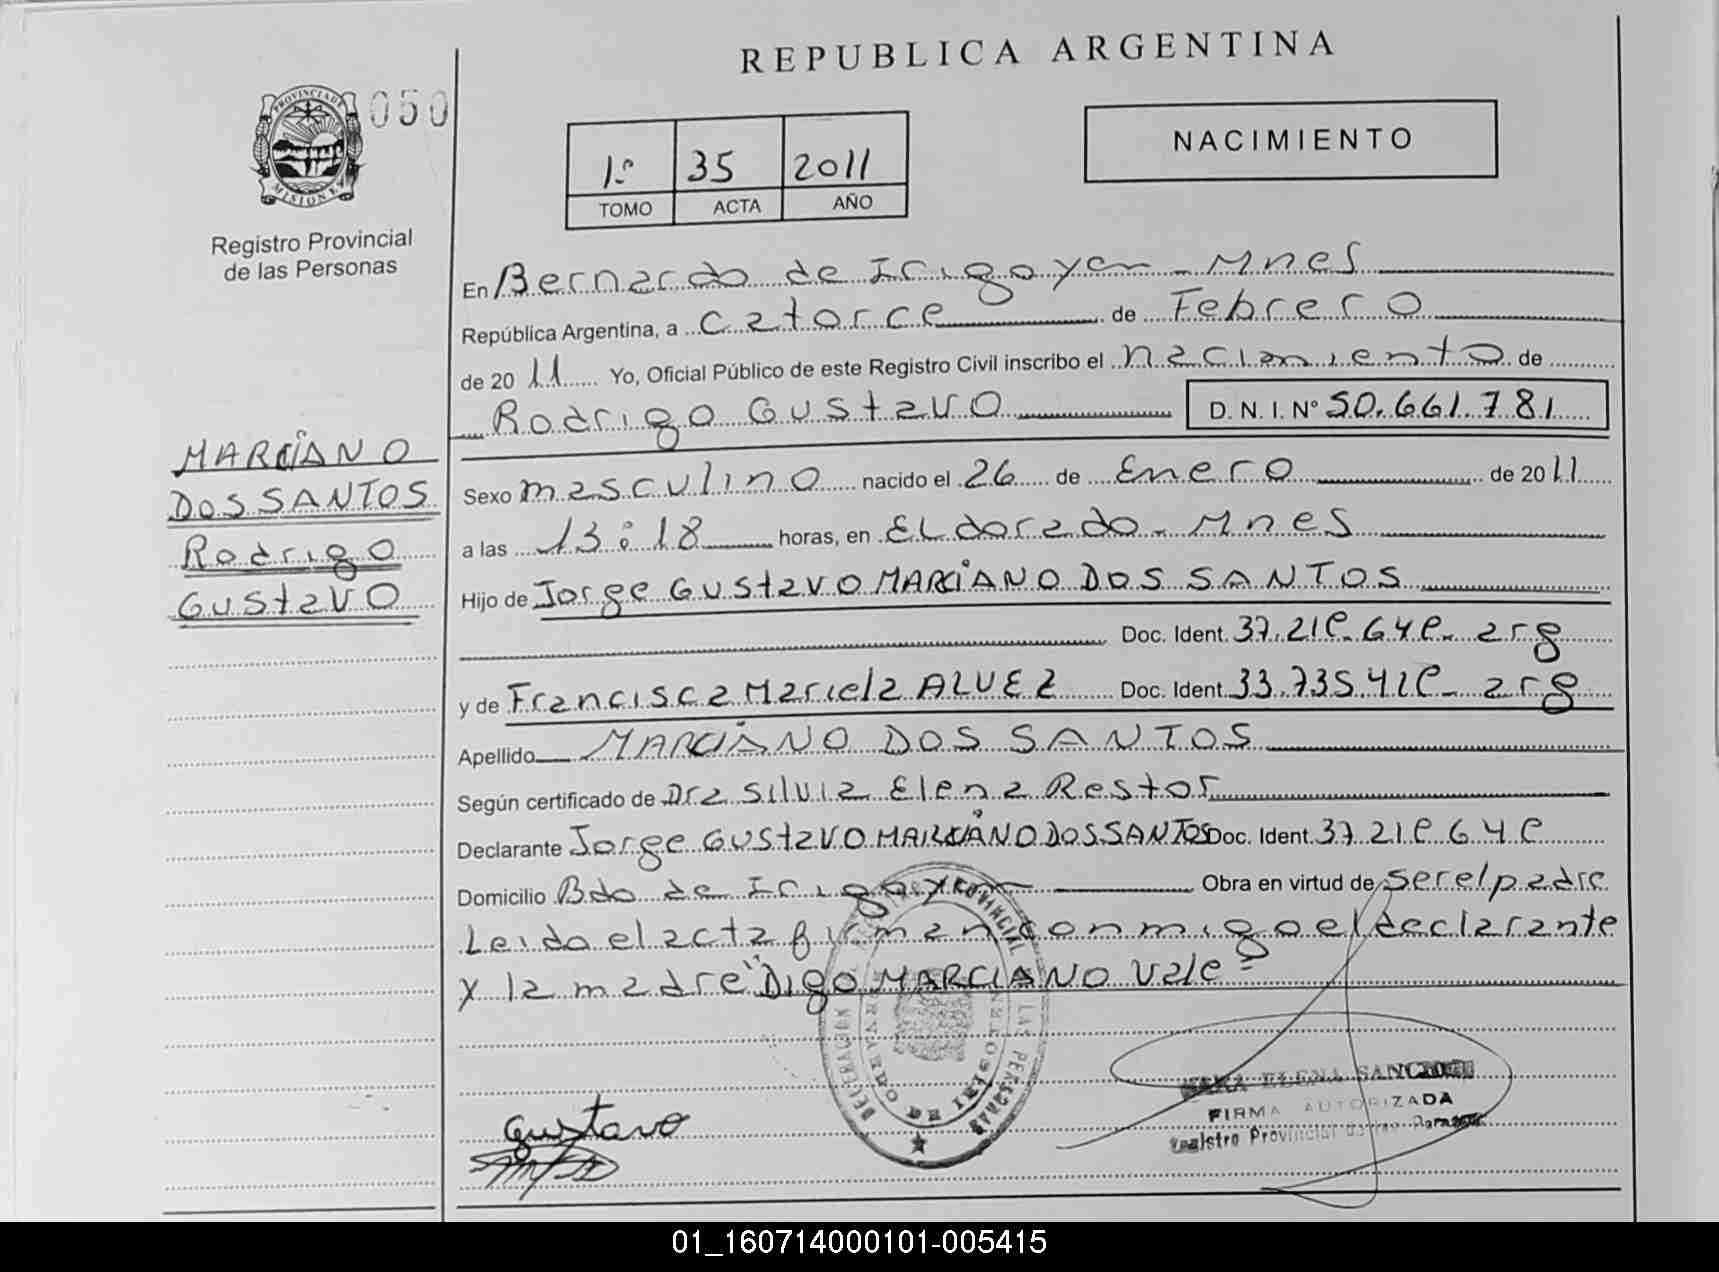 REPUBLICA ARGENTINA
050
PROVINCIA DE
MISIONES
Registro Provincial
de las Personas
1º 35 2011
TOMO ACTA AÑO
NACIMIENTO
En Bernardo de Irigoyen - Mnes
República Argentina, a catorce de Febrero
de 2011 Yo, Oficial Público de este Registro Civil inscribo el nacimiento de
Rodrigo Gustavo D. N. I. Nº 50.661.781
MARCIANO
DOS SANTOS
Rodrigo
Gustavo
Sexo masculino nacido el 26 de Enero de 2011
a las 13:18 horas, en Eldorado - Mnes
Hijo de Jorge Gustavo MARCIANO DOS SANTOS
Doc. Ident. arg
y de Francisca Mariela ALVEZ Doc. Ident. arg
Apellido MARCIANO DOS SANTOS
Según certificado de Dra Silvia Elena Restor
Declarante Jorge Gustavo MARCIANO DOS SANTOS Doc. Ident.
Domicilio Bdo de Irigoyen Obra en virtud de ser el padre
Leida el acta firman conmigo el declarante
y la madre "Digo MARCIANO Vale"
ELENA
FIRMA AUTORIZADA
Registro Provincial de las Personas
Gustavo
01_160714000101-005415